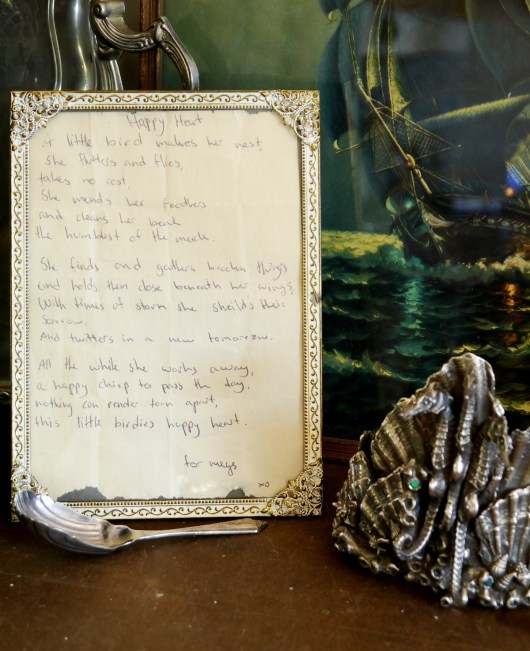 Happy Heart
A little bird makes her nest,
She flutters and flies,
takes no rest,
She mends her feathers
and cleans her beak
the humblest of the meek.
She finds and gathers broken things
and holds them close beneath her wings,
With times of storm she sheilds their
Sorrow.
And twitters in a new tomorrow.
All the while she works away,
a happy chirp to pass the day,
nothing can render torn apart,
this little birdies happy heart.
for megs
xo